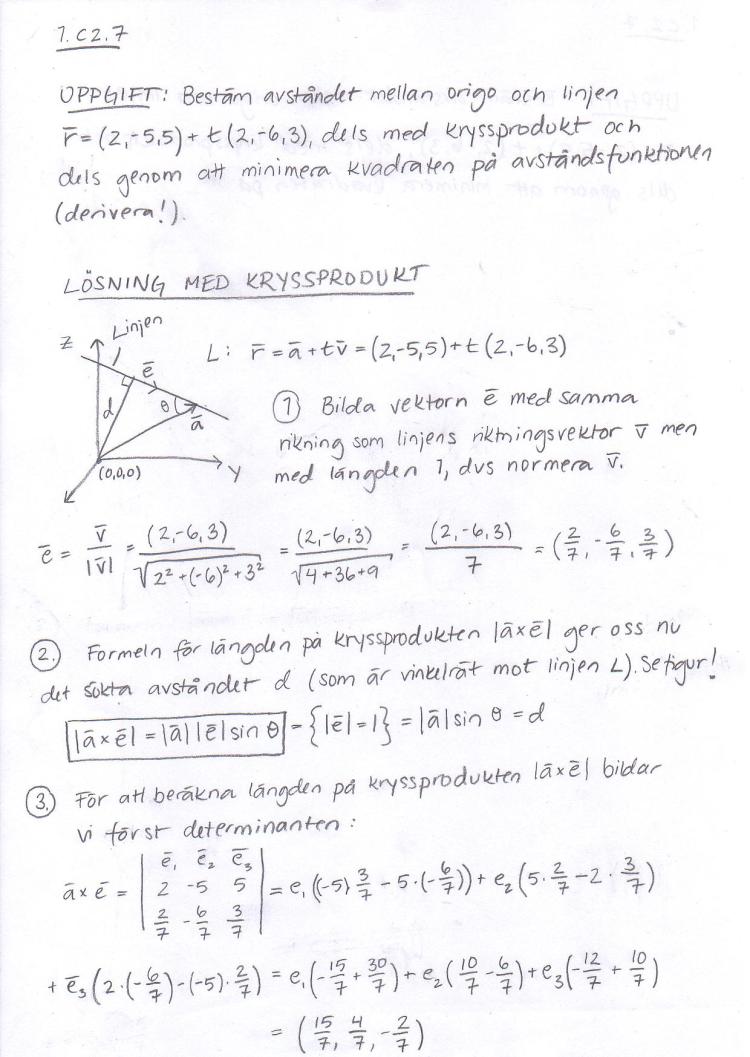 1.C2.7
UPPGIFT: Bestäm avståndet mellan origo och linjen
r̄=(2,-5,5)+t(2,-6,3), dels med kryssprodukt och
dels genom att minimera kvadraten på avståndsfunktionen
(derivera!).
LÖSNING MED KRYSSPRODUKT
Z Linjen
ē
d θ ā
(0,0,0) Y
L: r̄=ā+tv̄=(2,-5,5)+t(2,-6,3)
① Bilda vektorn ē med samma
rikning som linjens riktningsvektor v̄ men
med längden 1, dvs normera v̄.
ē = v̄/|v̄| = (2,-6,3)/√(2²+(-6)²+3²) = (2,-6,3)/√(4+36+9) = (2,-6,3)/7 = (2/7, -6/7, 3/7)
②. Formeln för längden på kryssprodukten |ā×ē| ger oss nu
det sökta avståndet d (som är vinkelrät mot linjen L). Se figur!
|ā×ē| = |ā||ē| sin θ = {|ē|=1} = |ā| sin θ = d
③. För att beräkna längden på kryssprodukten |ā×ē| bildar
vi först determinanten:
ē₁ ē₂ ē₃
ā×ē = | 2 -5 5 | = e₁((-5)3/7 - 5·(-6/7)) + e₂(5·2/7 - 2·3/7)
2/7 -6/7 3/7
+ ē₃(2·(-6/7) - (-5)·2/7) = e₁(-15/7 + 30/7) + e₂(10/7 - 6/7) + e₃(-12/7 + 10/7)
= (15/7, 4/7, -2/7)